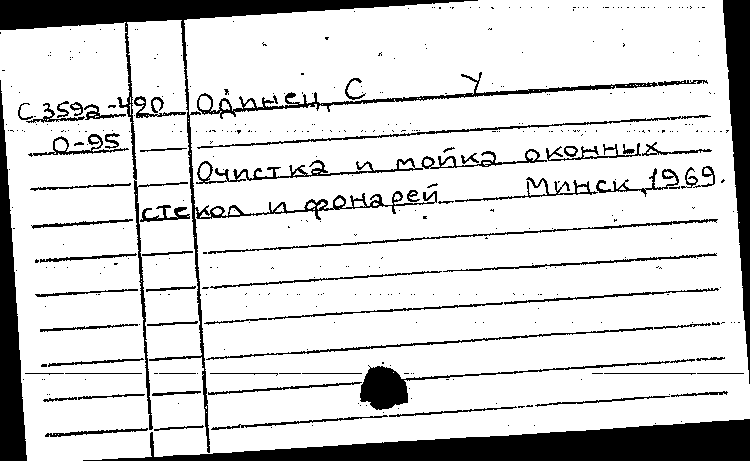 С 359а-490 Одинец, С У
О-95
Очистка и мойка оконных
стекол и фонарей Минск, 1969.